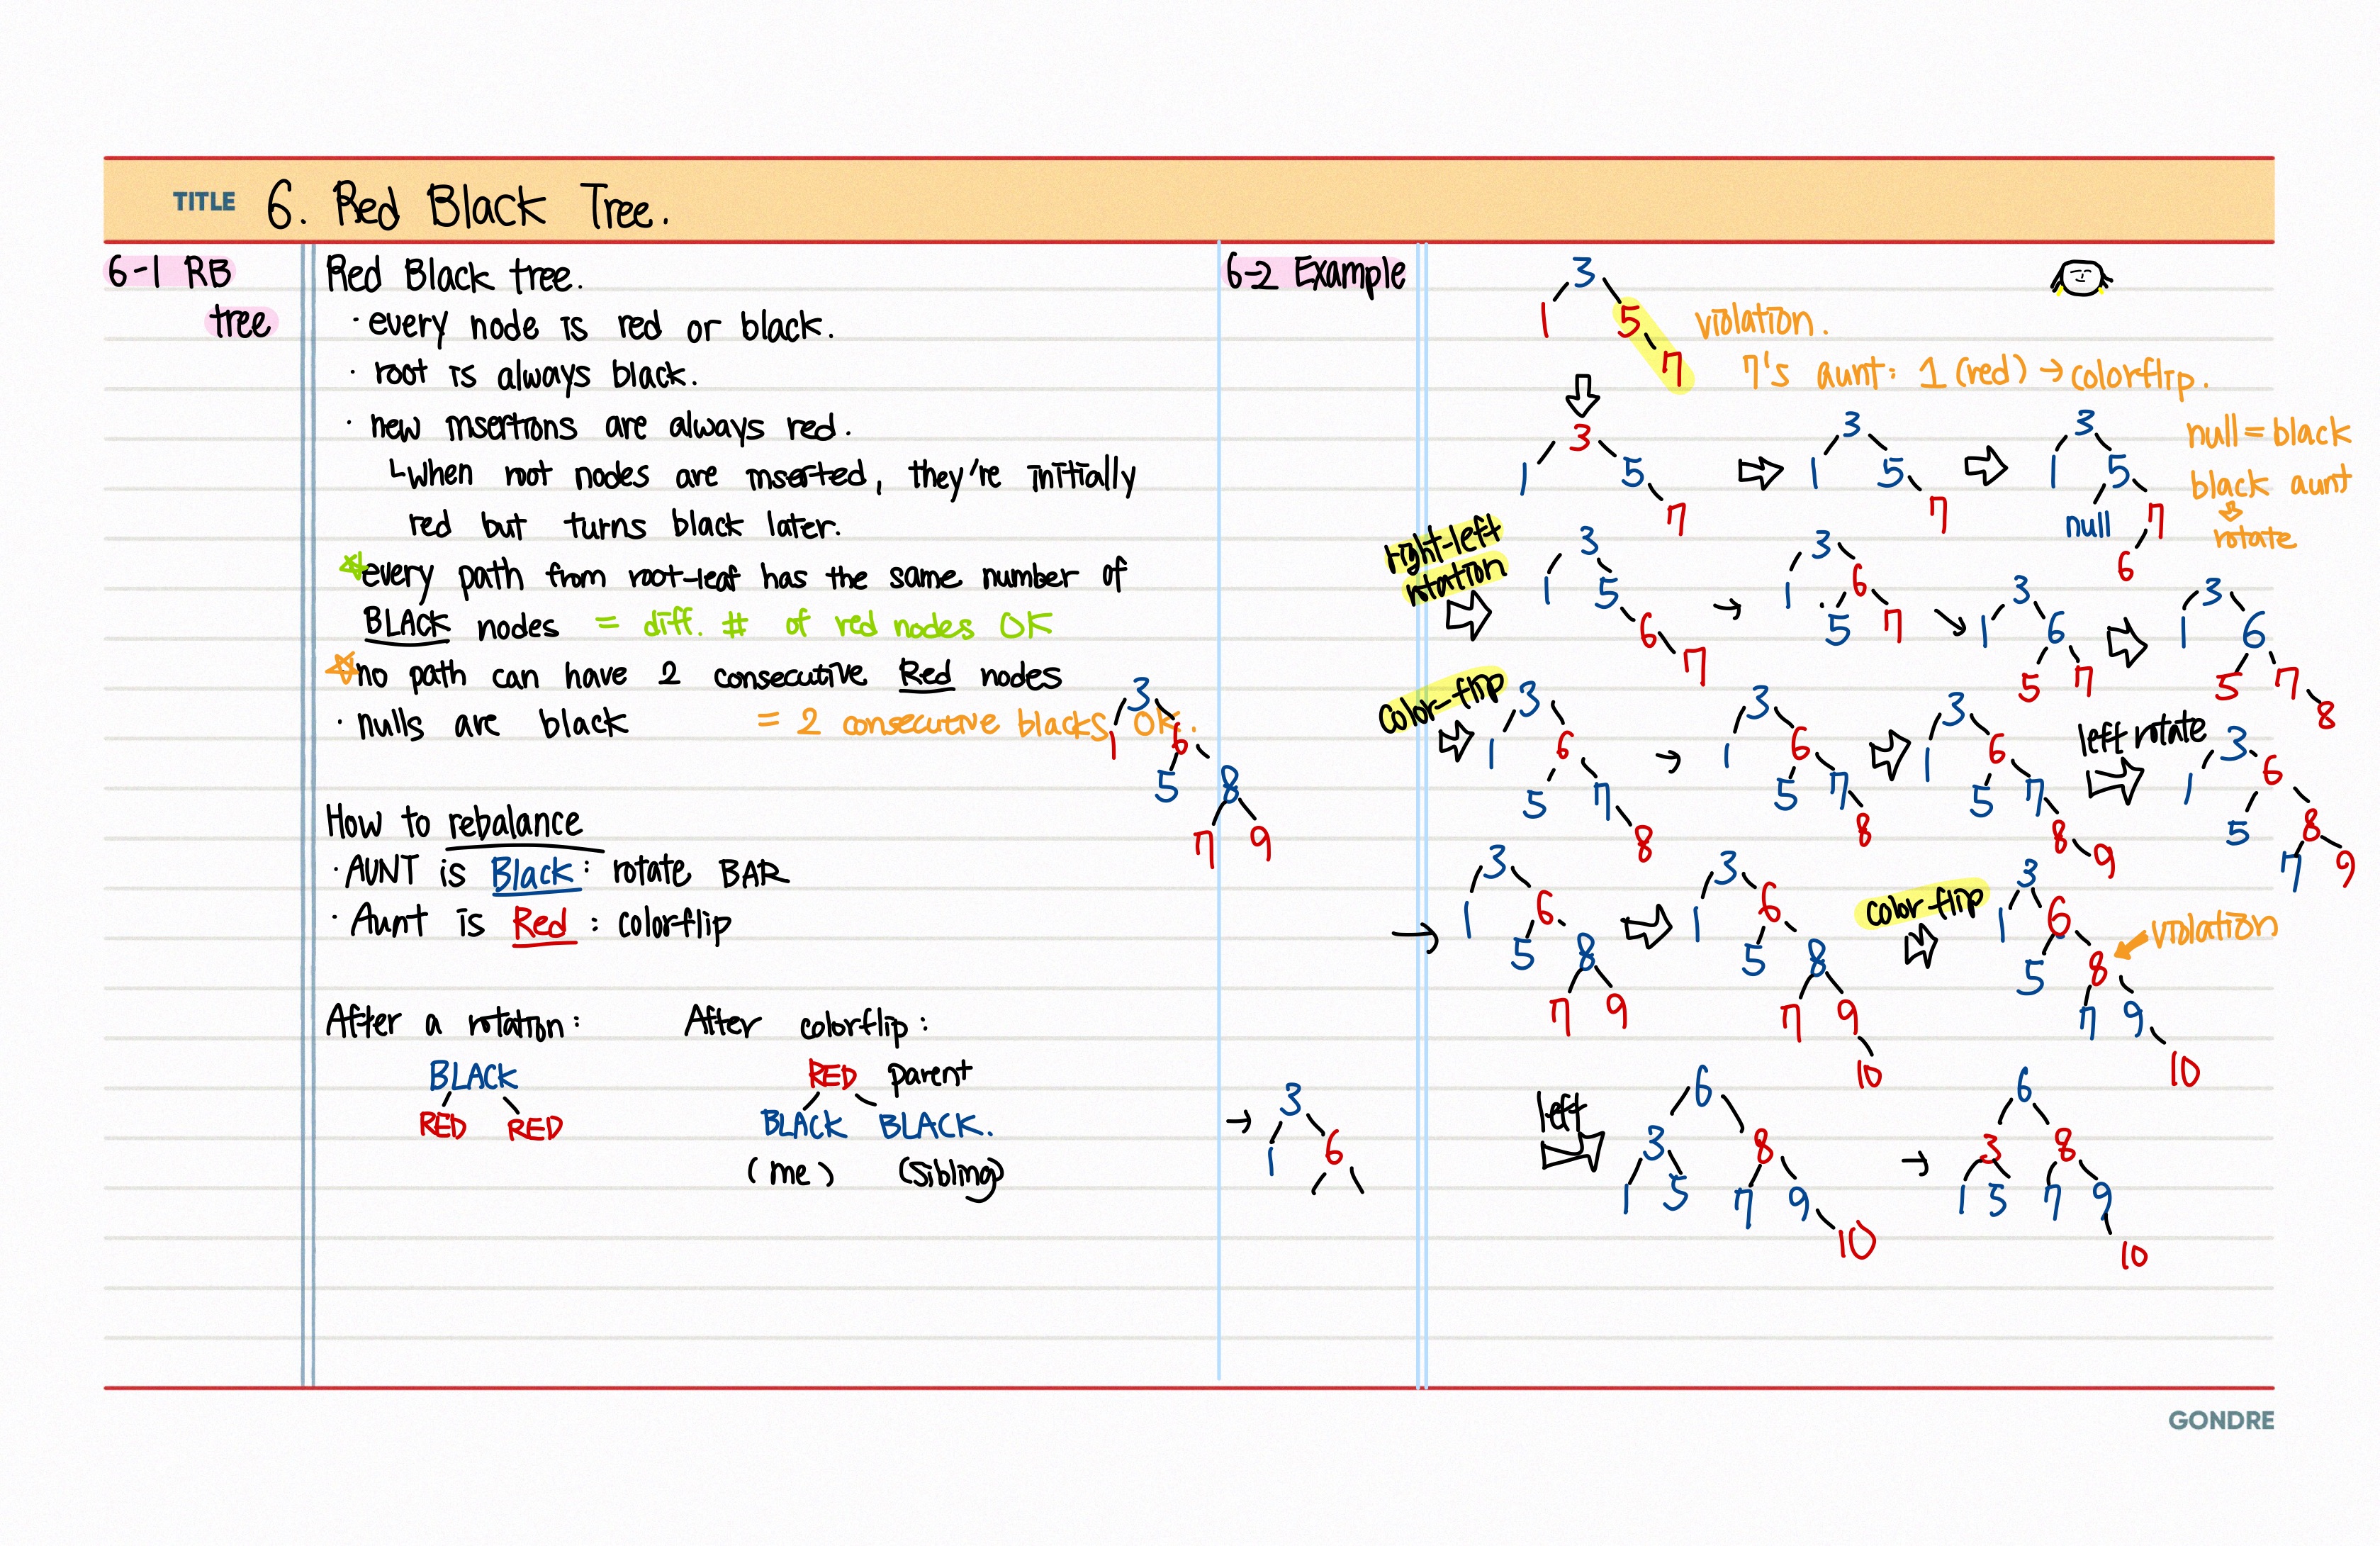 TITLE 6. Red Black Tree.
6-1 RB
tree
Red Black tree.
· every node is red or black.
· root is always black.
· new insertions are always red.
└when root nodes are inserted, they're initially
red but turns black later.
☆every path from root-leaf has the same number of
BLACK nodes = diff. # of red nodes OK
☆no path can have 2 consecutive Red nodes
· nulls are black = 2 consecutive blacks OK.
3
1 6
5 8
7 9
How to rebalance
· AUNT is Black : rotate BAR
· Aunt is Red : colorflip
After a rotation: After colorflip:
BLACK RED parent
RED RED BLACK BLACK.
(me) (sibling)
6-2 Example
3
1 5 violation.
7 7's aunt: 1 (red) → colorflip.
3 ⇨ 3 ⇨ 3 null = black
1 5 1 5 1 5 black aunt
7 7 null 7 ⇩ rotate
6
right-left
rotation
⇨ 3 → 3 → 3 ⇨ 3
1 5 1 6 1 6 1 6
6 5 7 5 7 5 7
7 8
color-flip
⇨ 3 → 3 ⇨ 3 left rotate ⇨ 3
1 6 1 6 1 6 1 6
5 7 5 7 5 7 5 8
8 8 8 7 9
9
→ 3 ⇨ 3 color flip ⇨ 3
1 6 1 6 1 6
5 8 5 8 5 8 ← violation
7 9 7 9 7 9
10 10
→ 3
1 6
left ⇨ 6 → 6
3 8 3 8
1 5 7 9 1 5 7 9
10 10
GONDRE